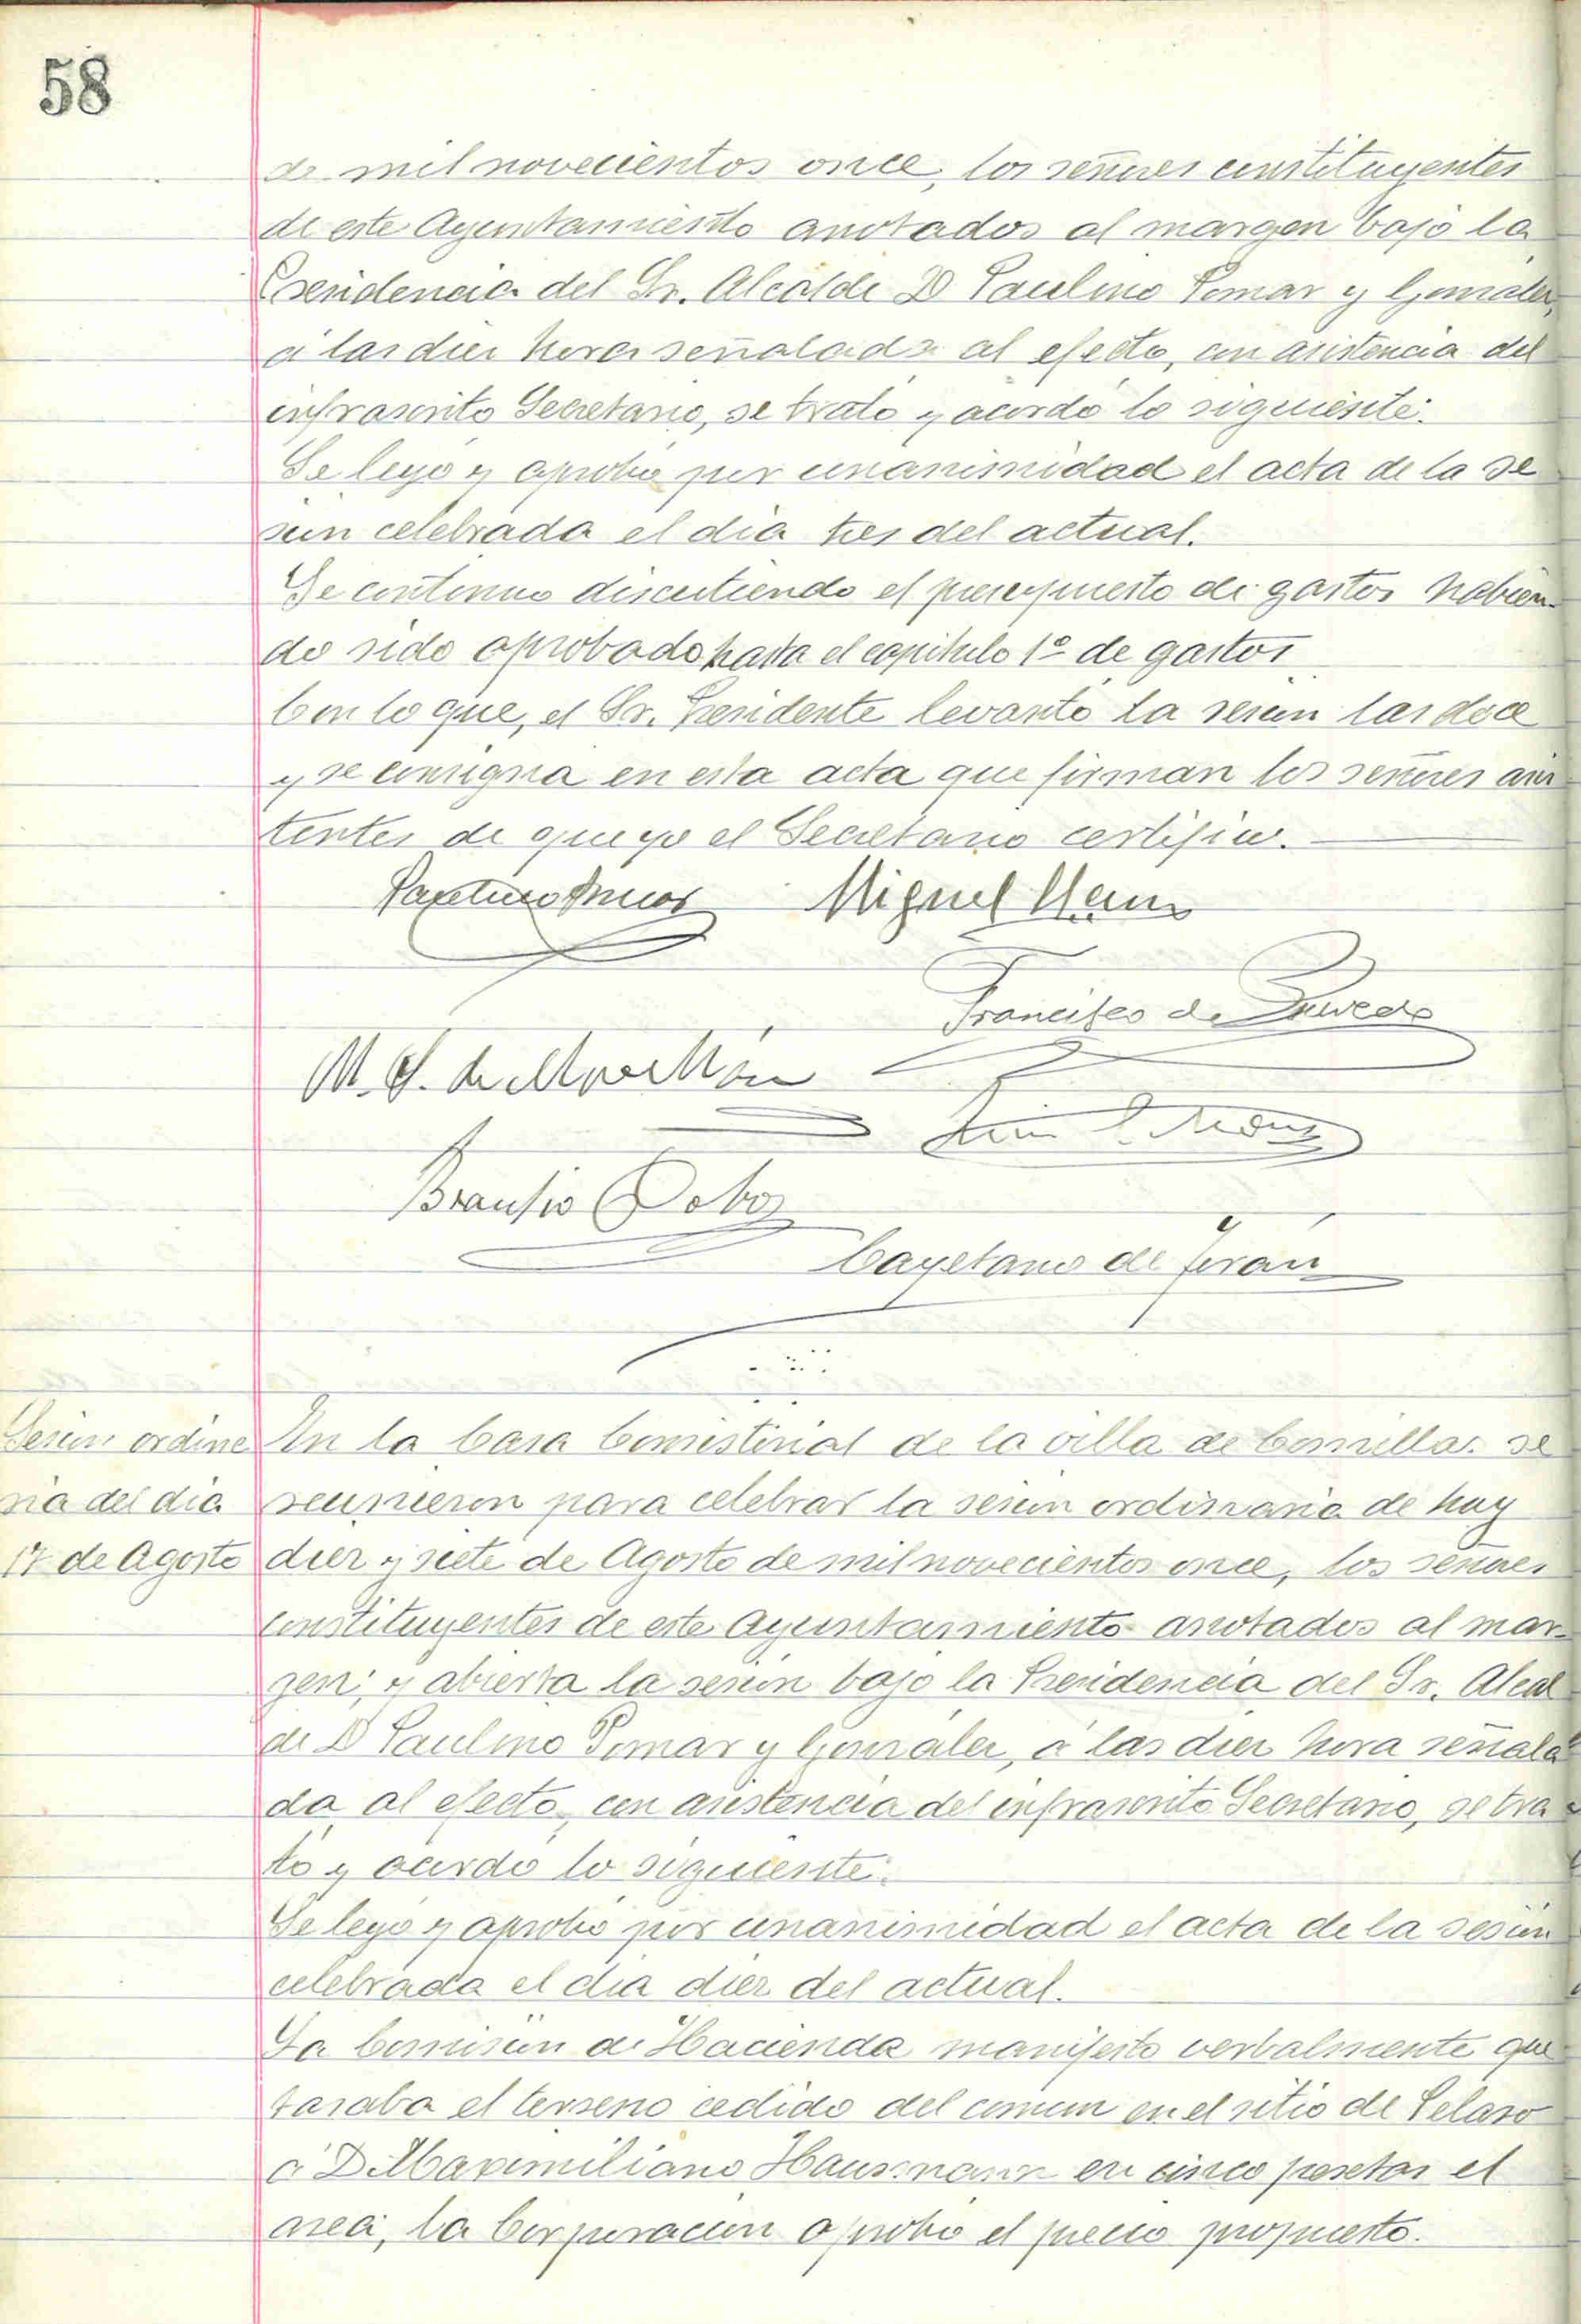 58
de mil novecientos once, los señores constituyentes
de este Ayuntamiento anotados al margen bajo la
Presidencia del Sr. Alcalde D Paulino Pomar y Gonzalez,
á las diez hora señalada al efecto, con asistencia del
infrascrito Secretario, se trató y acordó lo siguiente:
Se leyó y aprobó por unanimidad el acta de la se
sion celebrada el dia tres del actual.
Se continuo discutiendo el presupuesto de gastos habien-
do sido aprobado hasta el capitulo 1º de gastos
Con lo que, el Sr. Presidente levantó la sesion las doce
y se consigna en esta acta que firman los señores asis
tentes de que yo el Secretario certifico.
Paulino Pomar Miguel
Francisco de Quevedo
M. S. de Movellán
Braulio Cobos
Cayetano de Terán
Sesion ordina
ria del dia
17 de Agosto
En la Casa Consistorial de la villa de Comillas se
reunieron para celebrar la sesion ordinaria de hoy
diez y siete de Agosto de mil novecientos once, los señores
constituyentes de este Ayuntamiento anotados al mar-
gen; y abierta la sesion bajo la Presidencia del Sr. Alcal
de D Paulino Pomar y González, á las diez hora señala
da al efecto, con asistencia del infrascrito Secretario, se tra
tó y acordó lo siguiente:
Se leyó y aprobó por unanimidad el acta de la sesión
celebrada el dia diez del actual.
La Comisión de Hacienda manifesto verbalmente que
tasaba el terreno cedido del comun en el sitio de Pelaso
á D Maximiliano Haussmann en cinco pesetas el
area; la Corporacion aprobó el precio propuesto.